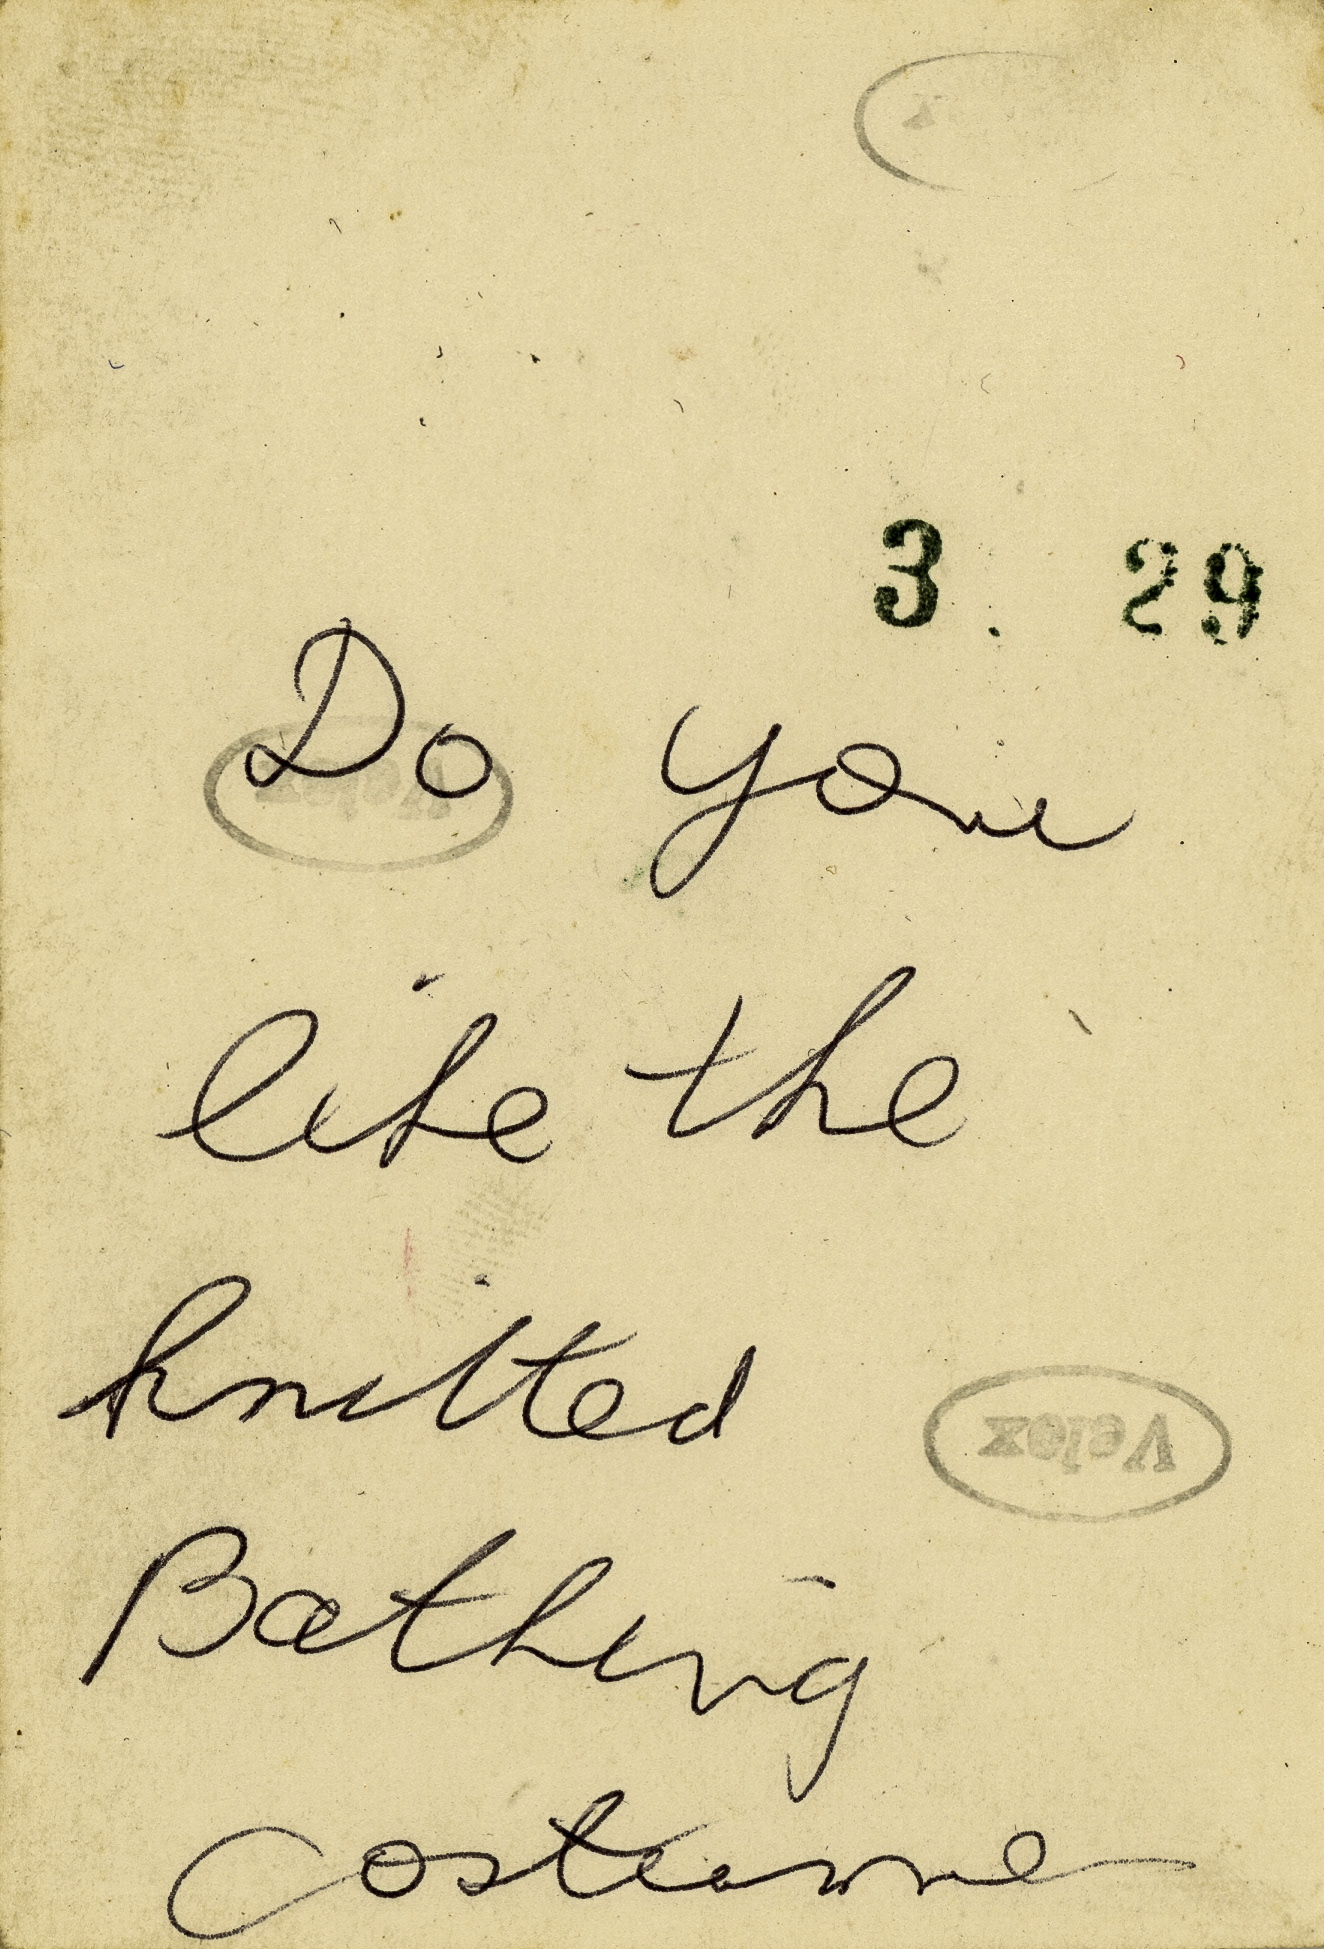 3. 29
Do you
Velox
like the
knitted
Velox
Bathing
costume